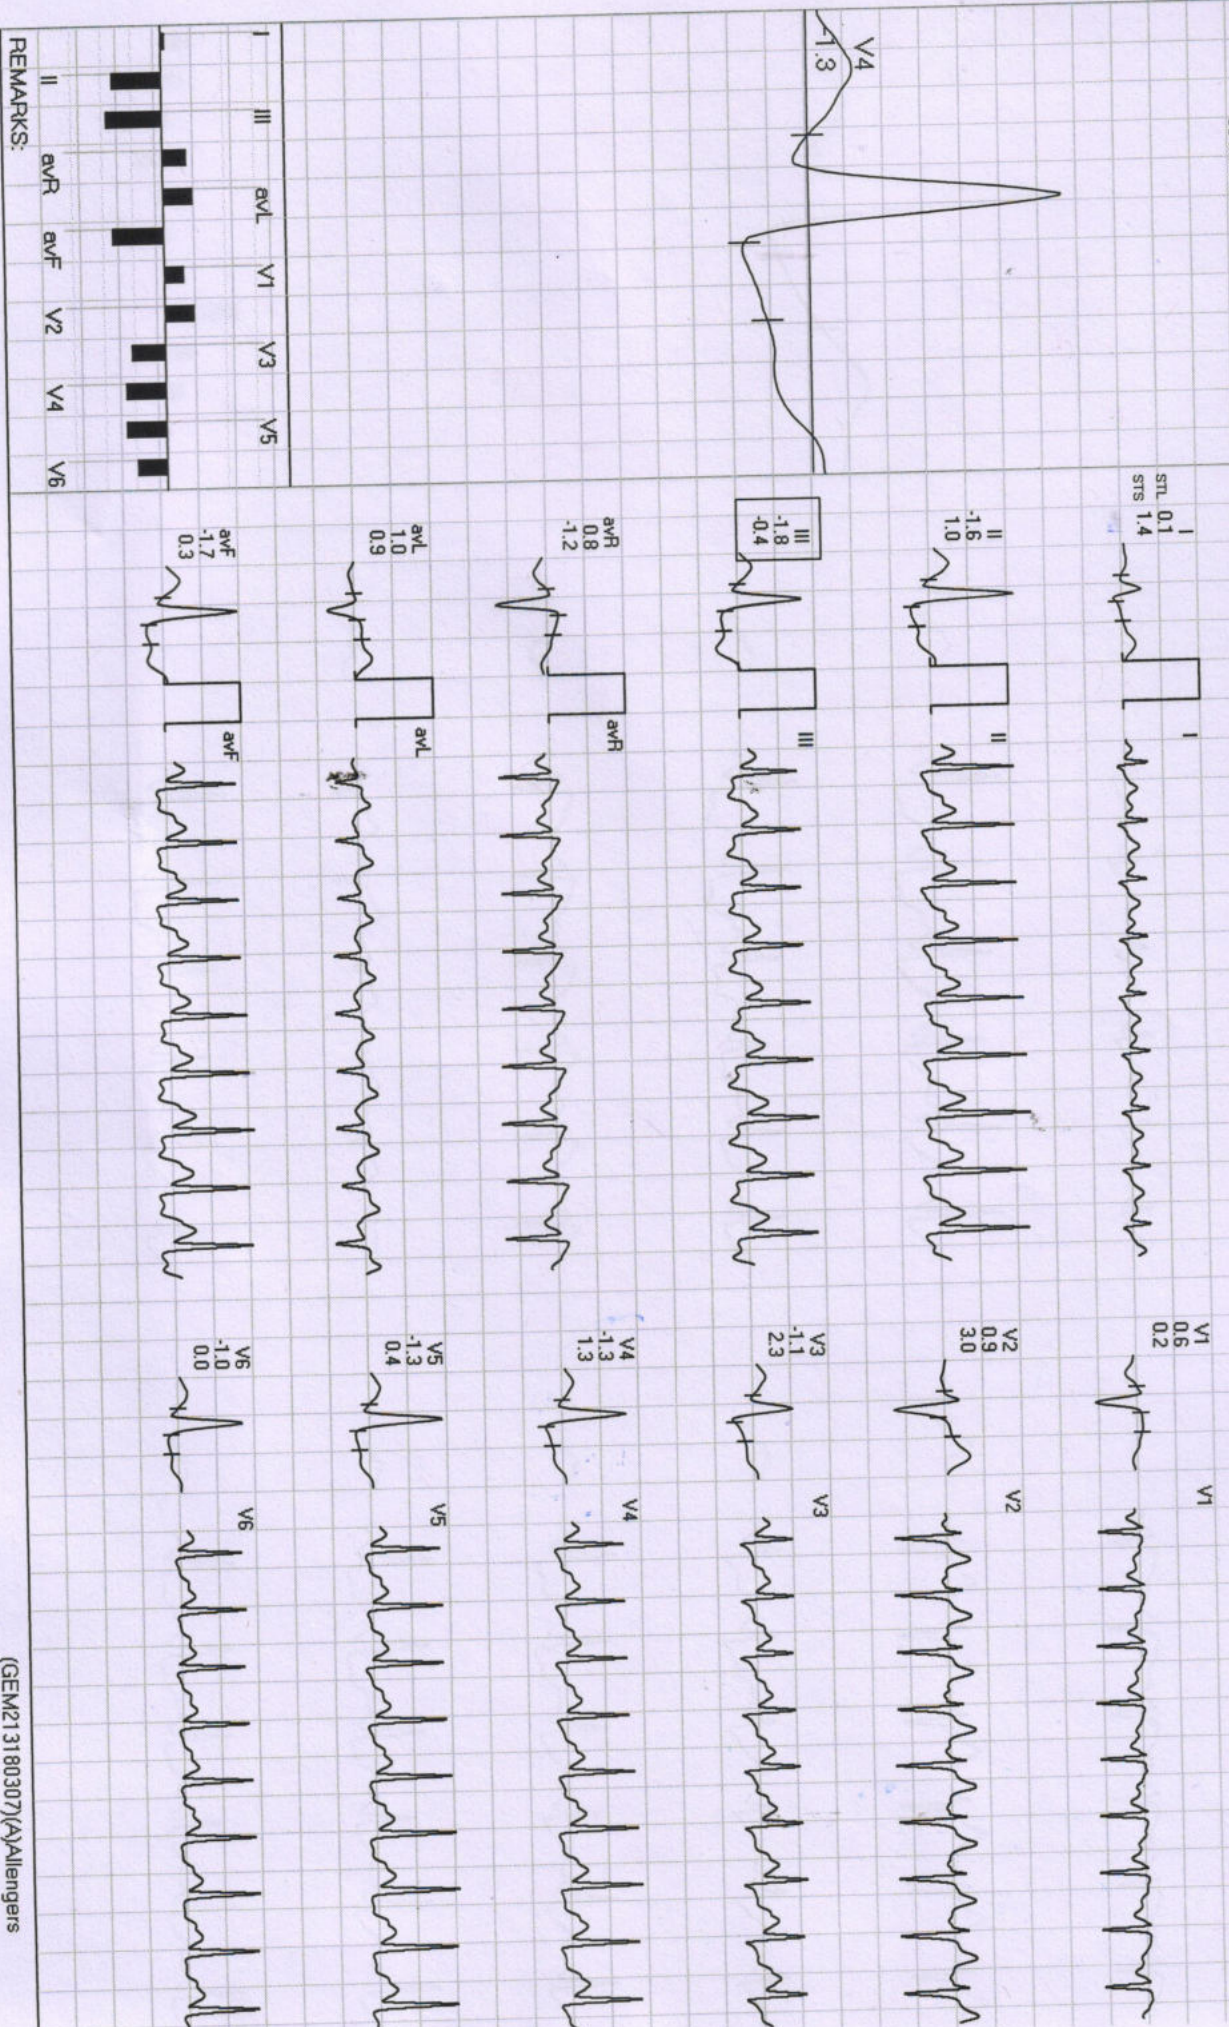 V4
-1.3
I III avL V1 V3 V5
II avR avF V2 V4 V6
REMARKS:
I
STL 0.1
STS 1.4
I
II
-1.6
1.0
II
III
-1.8
-0.4
III
avR
0.8
-1.2
avR
avL
1.0
0.9
avL
avF
-1.7
0.3
avF
V1
0.6
0.2
V1
V2
0.9
3.0
V2
V3
-1.1
2.3
V3
V4
-1.3
1.3
V4
V5
-1.3
0.4
V5
V6
-1.0
0.0
V6
(GEM213180307)(A)Allengers